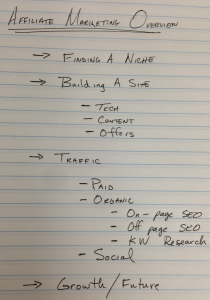 Affiliate Marketing Overview
→ Finding A Niche
→ Building A Site
- Tech
- Content
- Offers
→ Traffic
- Paid
- Organic
- On-page SEO
- Off page SEO
- KW Research
- Social
→ Growth/Future